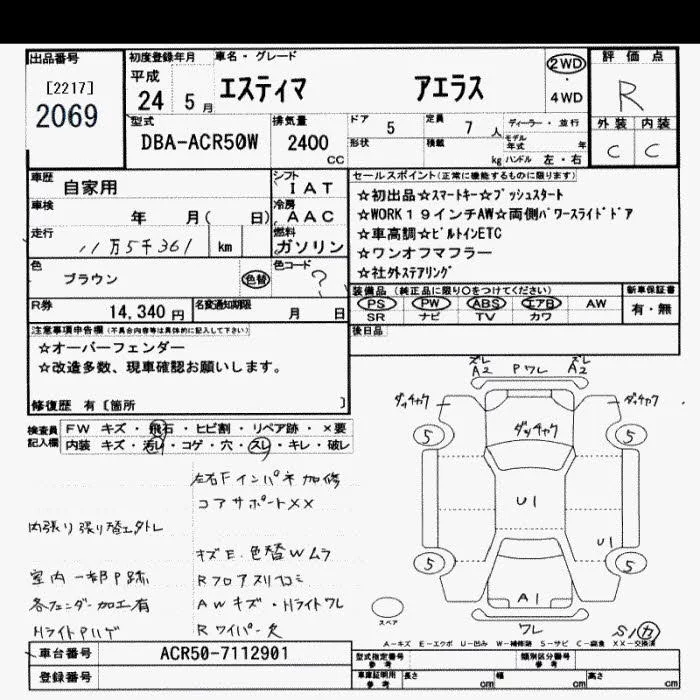 出品番号
[2217]
2069
初度登録年月
平成
24 5月
車名・グレード
エスティマ アエラス
2WD
・
4WD
評価点
R
外装 内装
C C
型式
DBA-ACR50W
排気量
2400
cc
ドア 5
定員 7 人
ディーラー・並行
形状
積載 kg
モデル年式 年
ハンドル 左・右
車歴 自家用
車検 年 月( 日)
走行 11万5千361 km
シフト IAT
冷房 AAC
燃料 ガソリン
色 ブラウン 色替
色コード ?
R券 14,340 円
名変通知期限 月 日
セールスポイント(正常に機能するものに限ります)
☆初出品☆スマートキー☆プッシュスタート
☆WORK19インチAW☆両側パワースライドドア
☆車高調☆ビルトインETC
☆ワンオフマフラー
☆社外ステアリング
装備品(純正品に限り○をつけてください)
PS PW ABS エアB AW
SR ナビ TV カワ
新車保証書
有・無
後日品
注意事項申告欄(不具合内容等は具体的に記入して下さい)
☆オーバーフェンダー
☆改造多数、現車確認お願いします。
修復歴 有[箇所 ]
検査員記入欄
FW キズ・飛石・ヒビ割・リペア跡・×要
内装 キズ・汚レ・コゲ・穴・スレ・キレ・破レ
左右Fインパネ加修
コアサポートXX
内張り張り替エ
キズE.色替Wムラ
室内一部P跡
Rフロア
各フェンダー加工有
AWキズ・Hライトワレ
HライトPハゲ
Rワイパー欠
ズレ A2 Pワレ ズレ A2
ダッチャク ダッチャク
ダッチャク
5 5
U1
U1
5 5
A1
スペア
ワレ
S1 カ
A-キズ E-エクボ U-凹み W-補修跡 S-サビ C-腐食 XX-交換済
車台番号 ACR50-7112901
登録番号
型式指定番号 参考
類別区分番号 参考
車庫証明用 参考
長さ cm 幅 cm 高さ cm